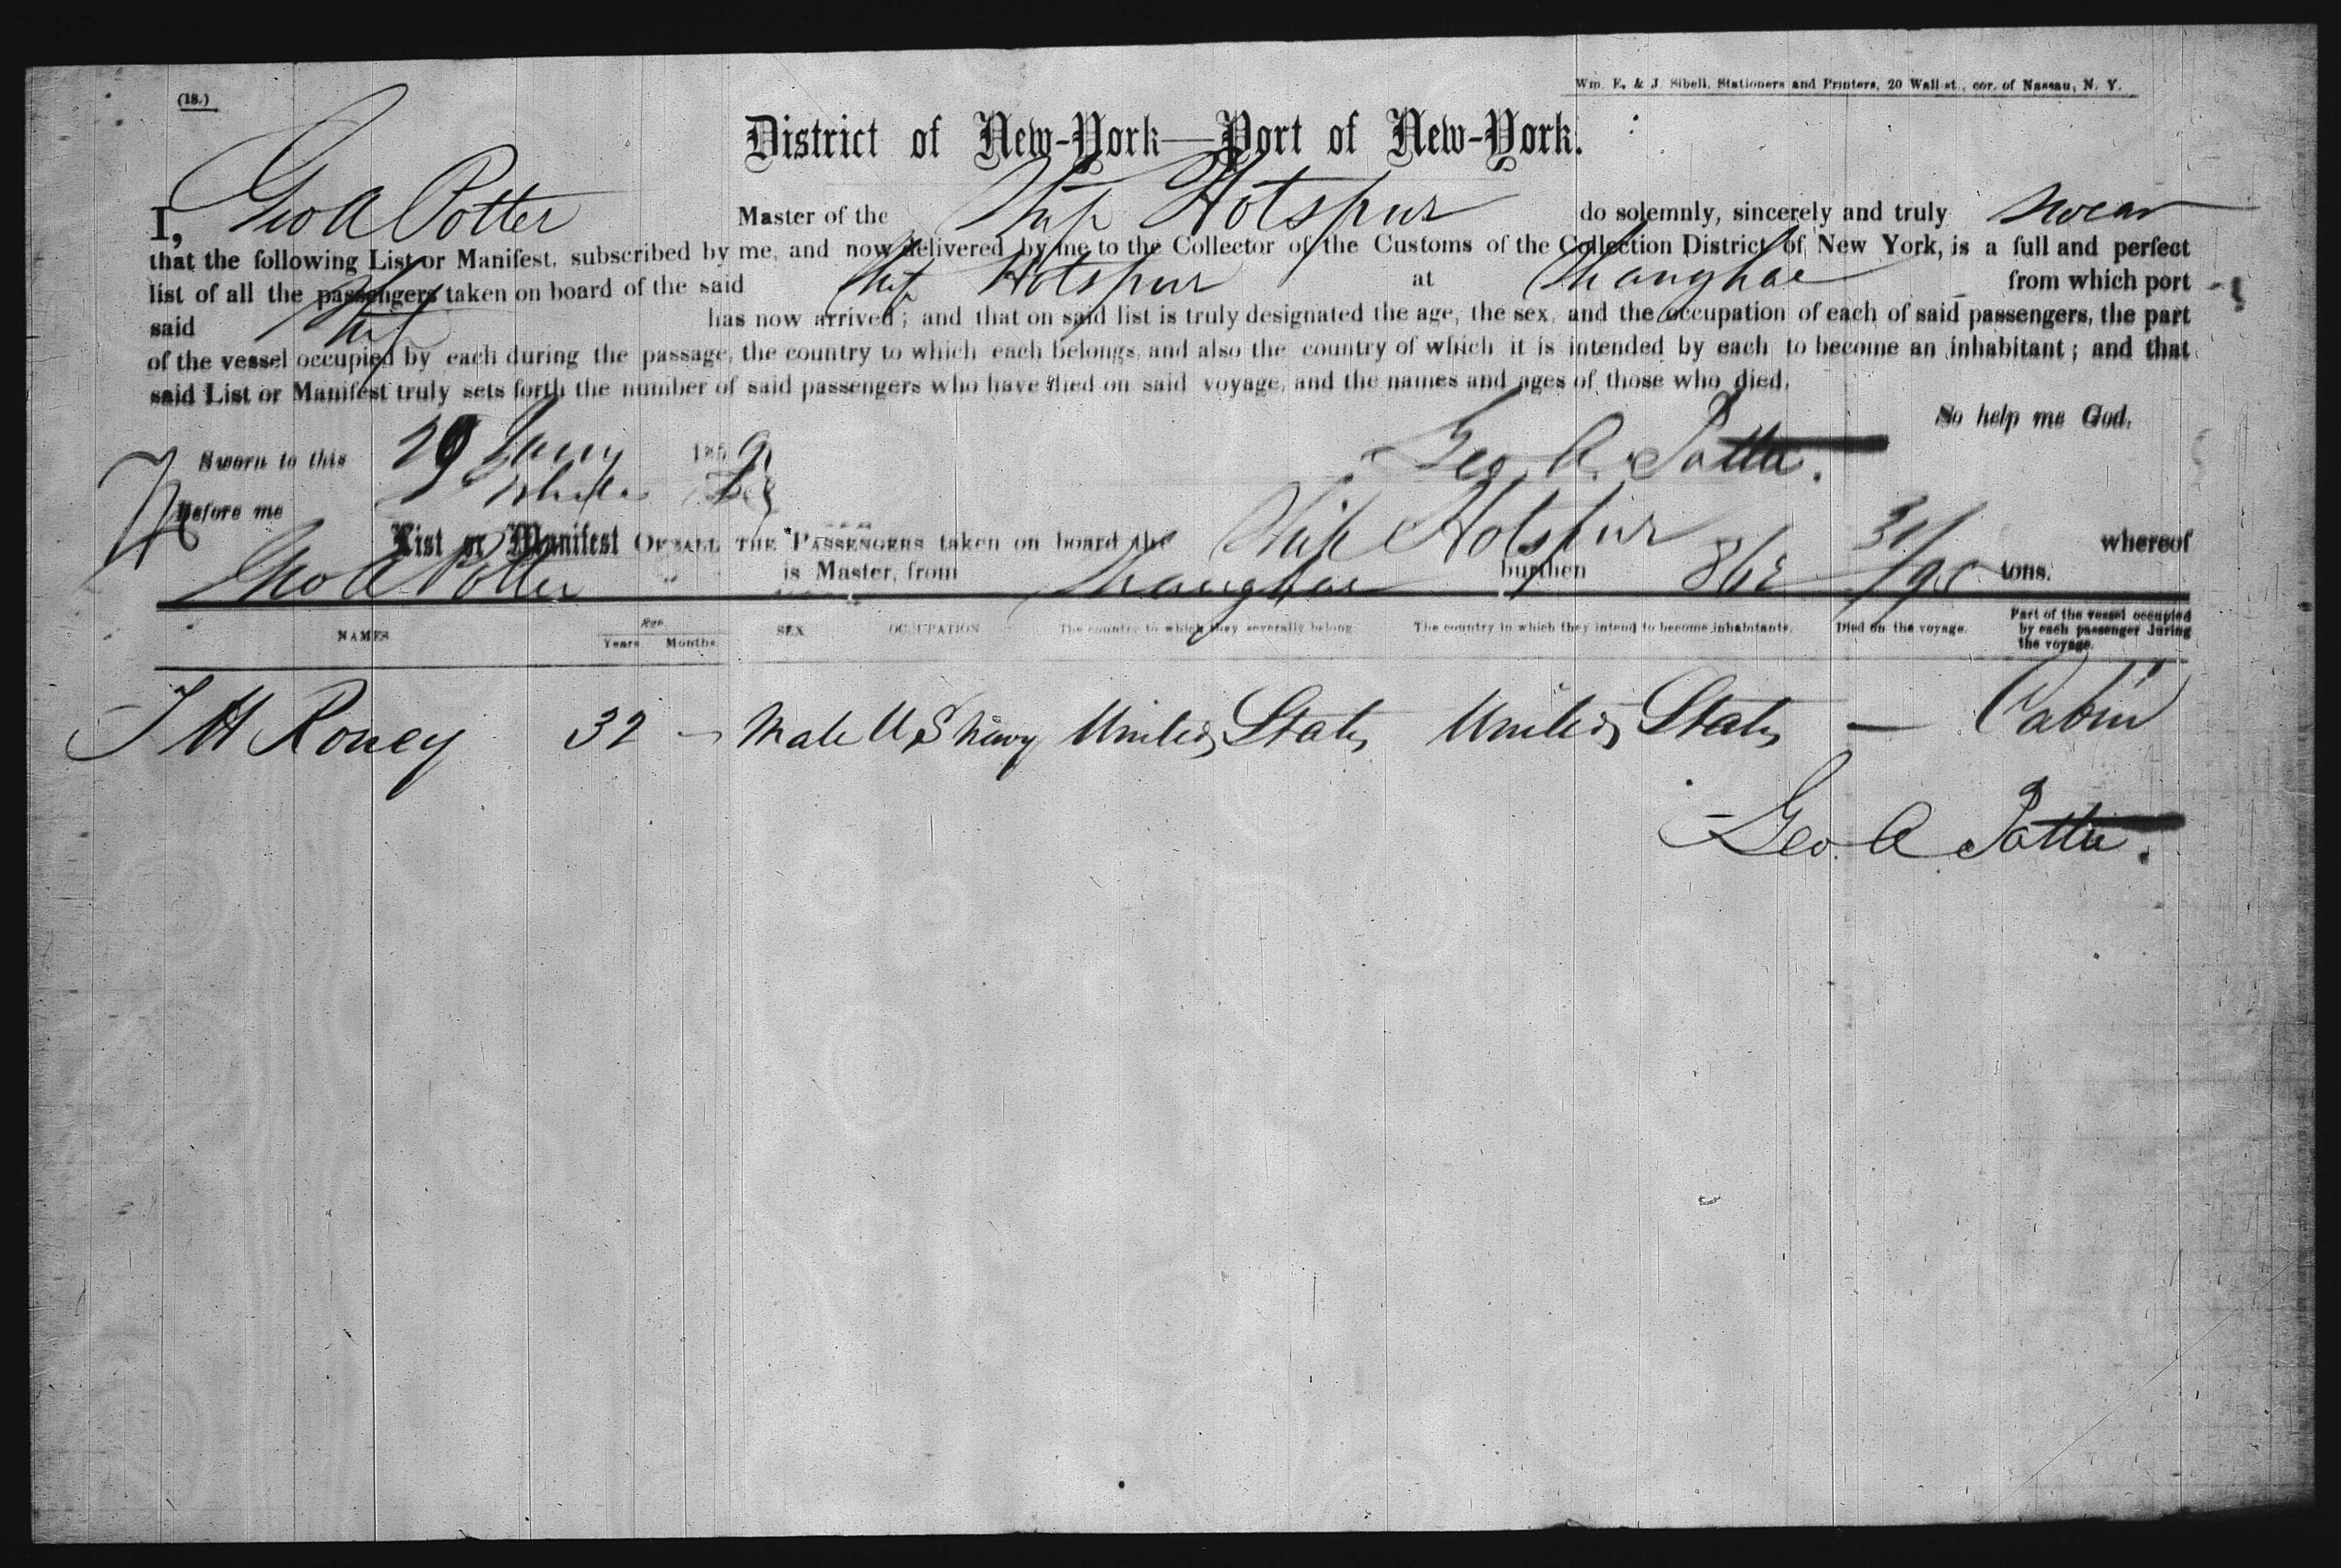 (18.)
Wm. E. & J. Sibell, Stationers and Printers, 20 Wall-st., cor. of Nassau, N. Y.
District of New-York—Port of New-York.
I, Geo A Potter Master of the Ship Hotspur do solemnly, sincerely and truly swear
that the following List or Manifest, subscribed by me, and now delivered by me to the Collector of the Customs of the Collection District of New York, is a full and perfect
list of all the passengers taken on board of the said Ship Hotspur at Shanghae from which port
said Ship has now arrived; and that on said list is truly designated the age, the sex, and the occupation of each of said passengers, the part
of the vessel occupied by each during the passage, the country to which each belongs, and also the country of which it is intended by each to become an inhabitant; and that
said List or Manifest truly sets forth the number of said passengers who have died on said voyage, and the names and ages of those who died.
So help me God.
Sworn to this 29 Jany 1859
Geo. A. Potter.
Before me
List or Manifest OF ALL THE PASSENGERS taken on board the Ship Hotspur whereof
Geo A Potter is Master, from Shanghae burthen 862 31/95 tons.
NAMES Age Years Months SEX OCCUPATION The country to which they severally belong. The country in which they intend to become inhabitants. Died on the voyage. Part of the vessel occupied by each passenger during the voyage.
J H Roney 32 — Male U S Navy United States United States — Cabin
Geo. A Potter.